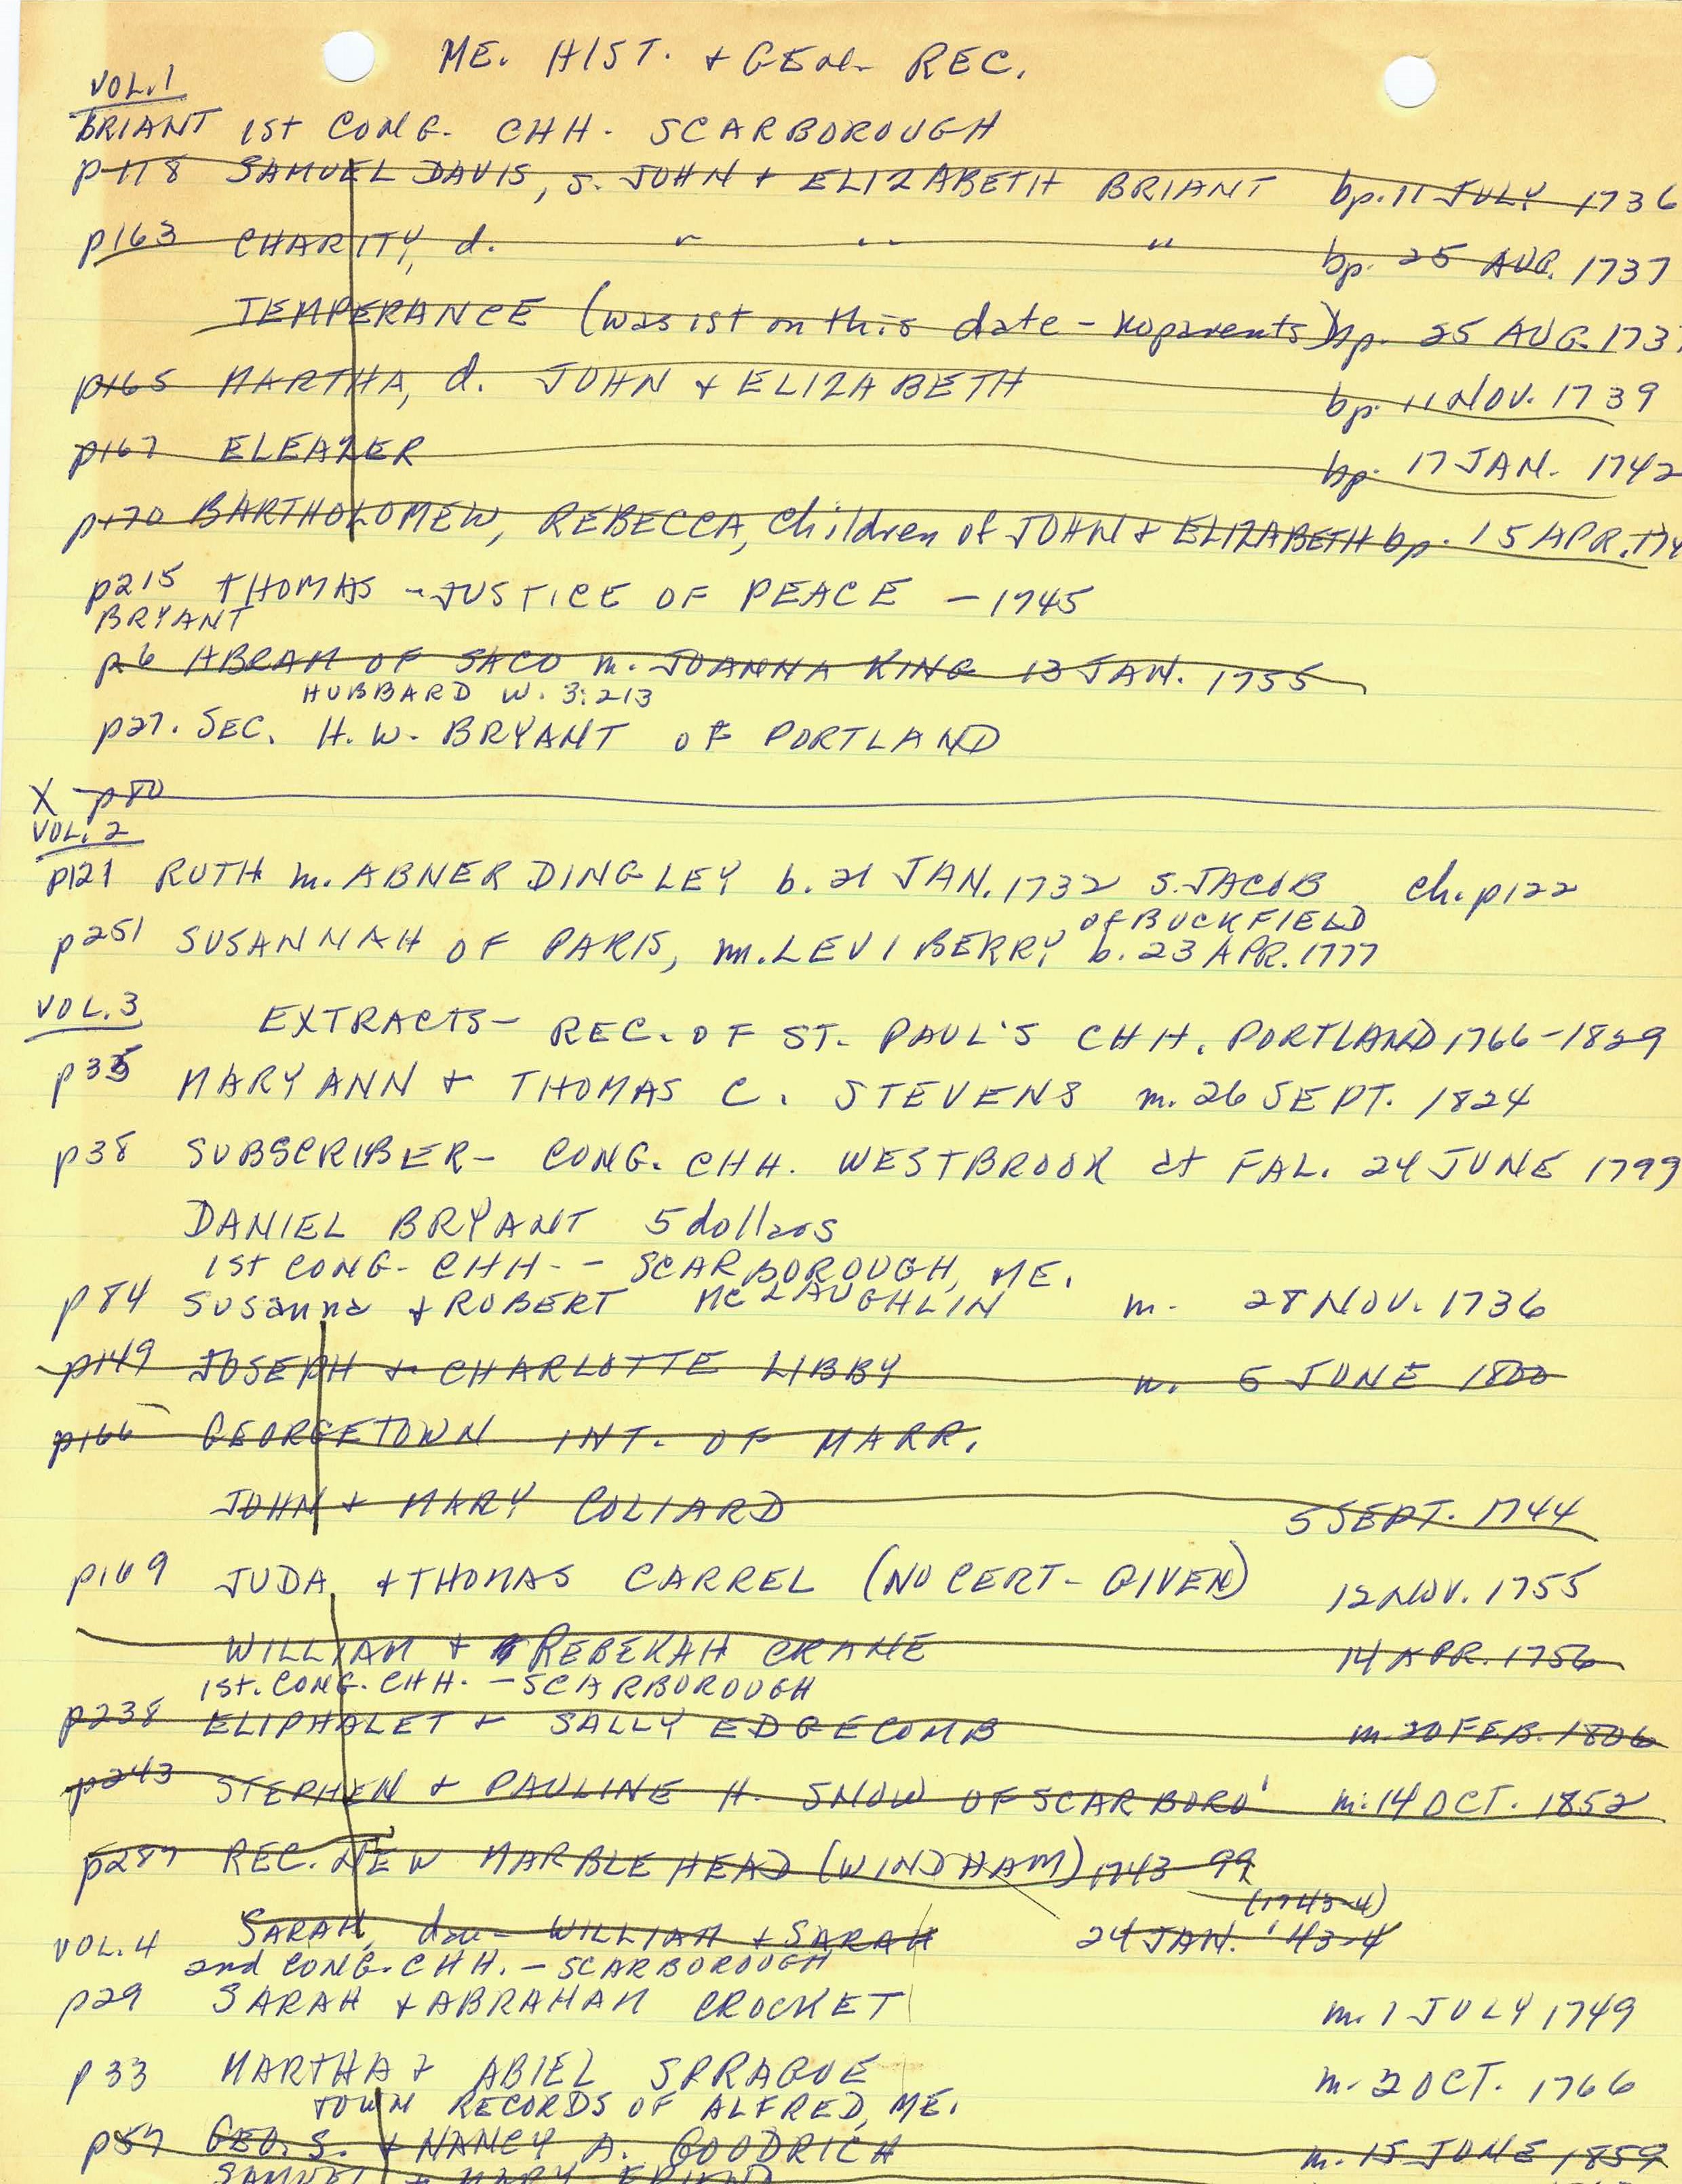 ME. HIST. + GEN. REC.
VOL.1
BRIANT 1ST CONG. CHH. SCARBOROUGH
p118 SAMUEL DAVIS, s. JOHN + ELIZABETH BRIANT bp. 11 JULY 1736
p163 CHARITY, d. " " " bp. 25 AUG. 1737
TEMPERANCE (was 1st on this date - no parents) bp. 25 AUG. 173
p165 MARTHA, d. JOHN + ELIZABETH bp. 11 NOV. 1739
p167 ELEAZER bp. 17 JAN. 1742
p170 BARTHOLOMEW, REBECCA, children of JOHN + ELIZABETH bp. 15 APR. 174
p215 THOMAS - JUSTICE OF PEACE - 1745
BRYANT
p6 ABRAM OF SACO m. JOANNA KING 13 JAN. 1755
HUBBARD W. 3:213
p27. SEC. H.W. BRYANT OF PORTLAND
X p80
VOL. 2
p121 RUTH m. ABNER DINGLEY b. 21 JAN. 1732 S. JACOB ch. p122
OF BUCKFIELD
p251 SUSANNAH OF PARIS, m. LEVI BERRY b. 23 APR. 1777
VOL. 3 EXTRACTS - REC. OF ST. PAUL'S CHH. PORTLAND 1766-1829
p35 MARY ANN + THOMAS C. STEVENS m. 26 SEPT. 1824
p38 SUBSCRIBER - CONG. CHH. WESTBROOK at FAL. 24 JUNE 1799
DANIEL BRYANT 5 dollars
1ST CONG. CHH. - SCARBOROUGH, ME.
p84 Susanna + ROBERT MCLAUGHLIN m. 28 NOV. 1736
p149 JOSEPH + CHARLOTTE LIBBY m. 5 JUNE 1800
p166 GEORGETOWN INT. OF MARR.
JOHN + MARY COLIARD 5 SEPT. 1744
p169 JUDA + THOMAS CARREL (NO CERT - GIVEN) 12 NOV. 1755
WILLIAM + REBEKAH CRANE 14 APR. 1756
1st. CONG. CHH. - SCARBOROUGH
p238 ELIPHALET + SALLY EDGECOMB m. 20 FEB. 1806
p243 STEPHEN + PAULINE H. SNOW OF SCARBORO' m. 14 OCT. 1852
p287 REC. NEW MARBLEHEAD (WINDHAM) 1743-99
(1743-4)
SARAH, dau - WILLIAM + SARAH 24 JAN. '43-4
VOL. 4 2nd CONG. CHH. - SCARBOROUGH
p29 SARAH + ABRAHAM CROCKET m. 1 JULY 1749
p33 MARTHA + ABIEL SPRAGUE m. 2 OCT. 1766
TOWN RECORDS OF ALFRED, ME.
p57 GEO. S. + NANCY A. GOODRICH m. 15 JUNE 1859
SAMUEL + MARY